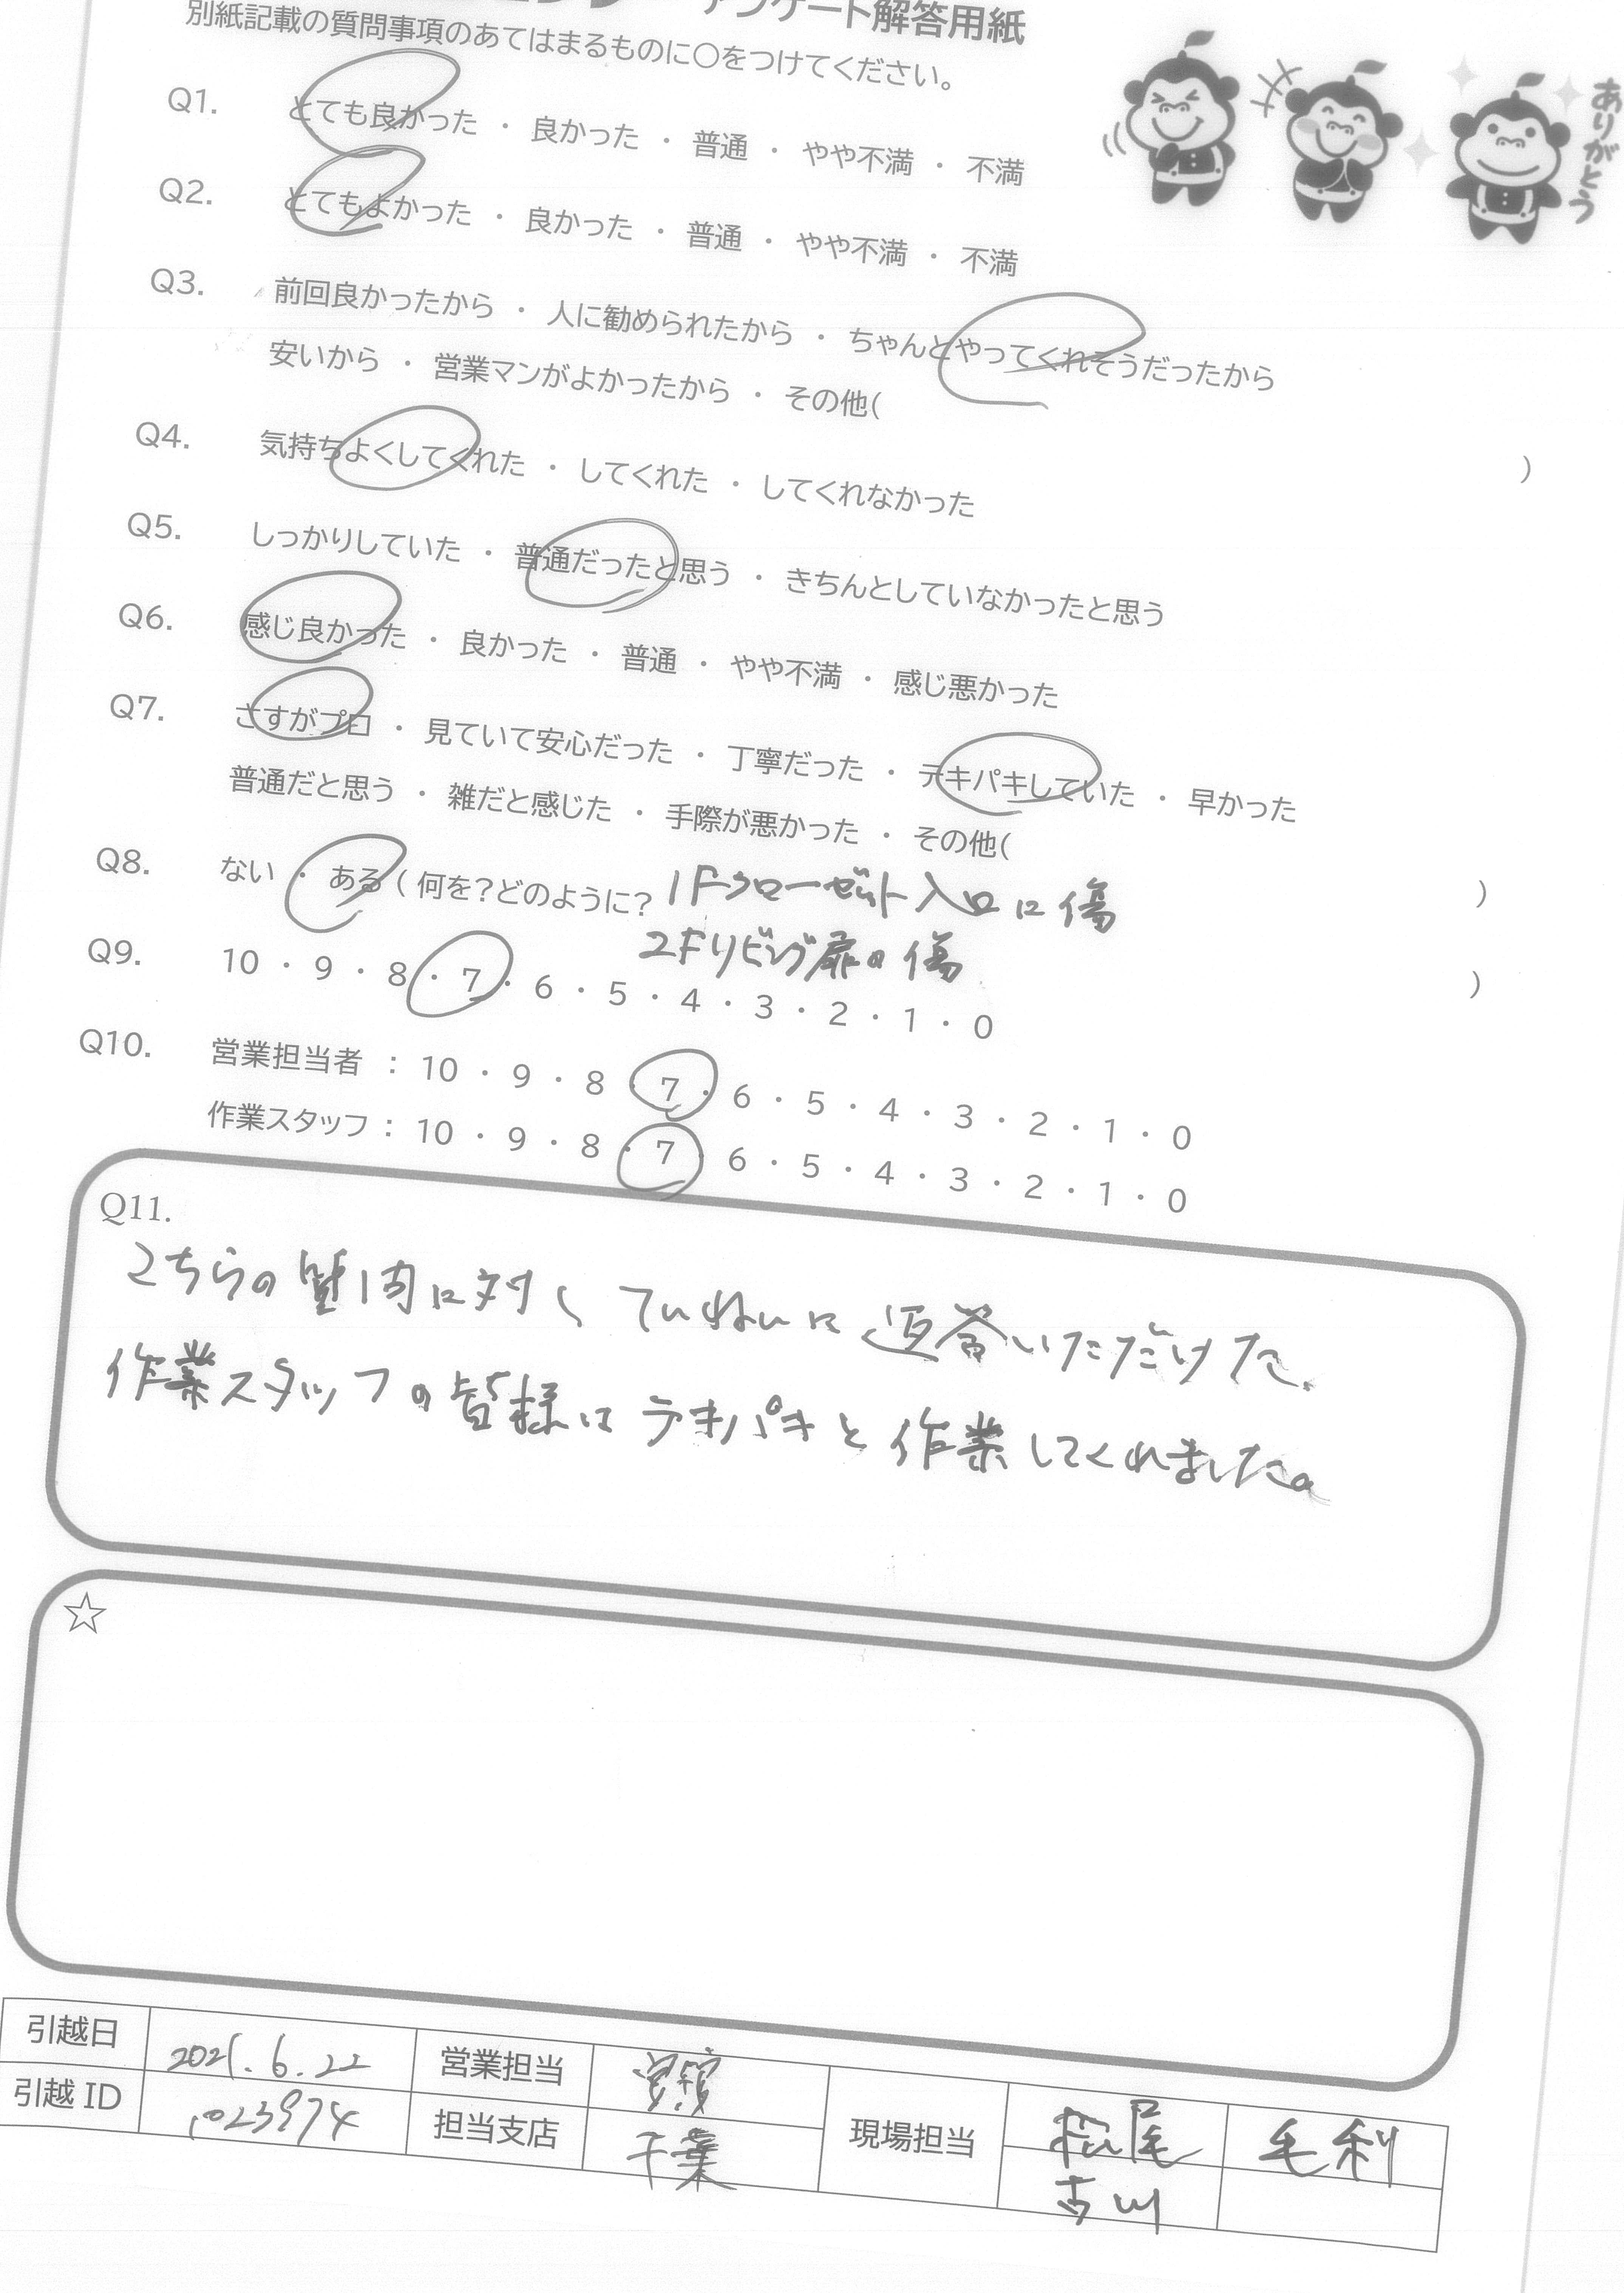 アンケート解答用紙
別紙記載の質問事項のあてはまるものに○をつけてください。
ありがとう
Q1. とても良かった ・ 良かった ・ 普通 ・ やや不満 ・ 不満
Q2. とてもよかった ・ 良かった ・ 普通 ・ やや不満 ・ 不満
Q3. 前回良かったから ・ 人に勧められたから ・ ちゃんとやってくれそうだったから
安いから ・ 営業マンがよかったから ・ その他( )
Q4. 気持ちよくしてくれた ・ してくれた ・ してくれなかった
Q5. しっかりしていた ・ 普通だったと思う ・ きちんとしていなかったと思う
Q6. 感じ良かった ・ 良かった ・ 普通 ・ やや不満 ・ 感じ悪かった
Q7. さすがプロ ・ 見ていて安心だった ・ 丁寧だった ・ テキパキしていた ・ 早かった
普通だと思う ・ 雑だと感じた ・ 手際が悪かった ・ その他( )
Q8. ない ・ ある ( 何を?どのように? 1Fクローゼット入口に傷
2Fリビング扉の傷 )
Q9. 10 ・ 9 ・ 8 ・ 7 ・ 6 ・ 5 ・ 4 ・ 3 ・ 2 ・ 1 ・ 0
Q10. 営業担当者 : 10 ・ 9 ・ 8 ・ 7 ・ 6 ・ 5 ・ 4 ・ 3 ・ 2 ・ 1 ・ 0
作業スタッフ : 10 ・ 9 ・ 8 ・ 7 ・ 6 ・ 5 ・ 4 ・ 3 ・ 2 ・ 1 ・ 0
Q11.
こちらの質問に対し ていねいに返答いただけた.
作業スタッフの皆様はテキパキと作業してくれました。
☆
引越日 2021.6.22 営業担当
引越 ID 1023974 担当支店 千葉 現場担当 松尾 毛利
古川